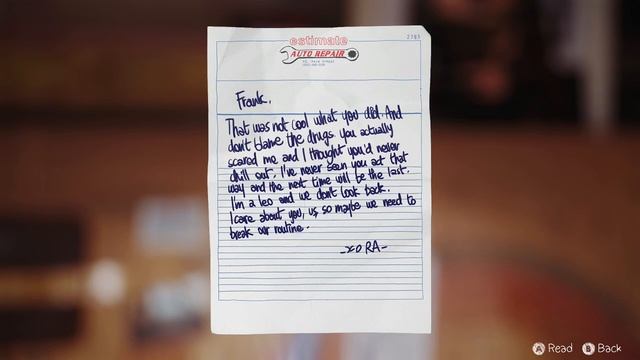 2785
estimate
AUTO REPAIR
Frank,
That was not cool what you did. And
don't blame the drugs you actually
scared me and I thought you'd never
chill out. I've never seen you act that
way and the next time will be the last.
I'm a leo and we don't look back.
I care about you, us so maybe we need to
break our routine.
-xo RA-
A Read B Back